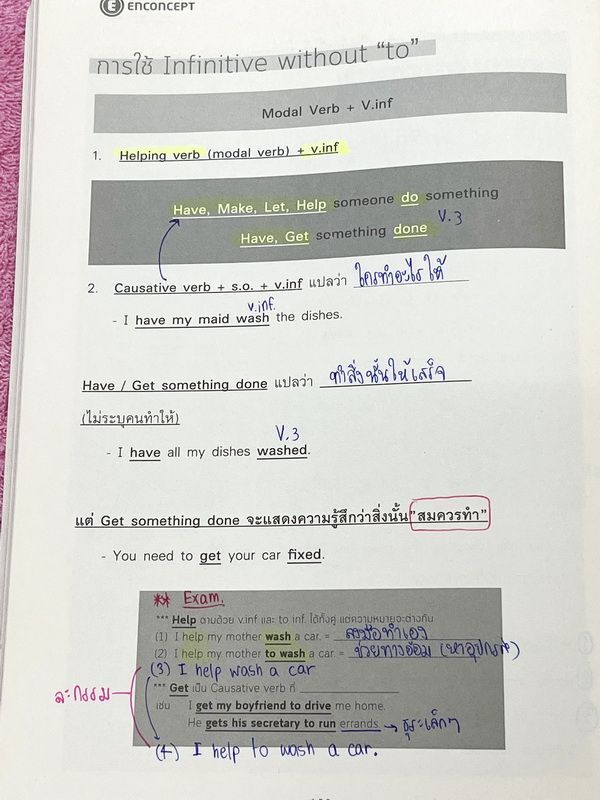 E ENCONCEPT
การใช้ Infinitive without "to"
Modal Verb + V.inf
1. Helping verb (modal verb) + v.inf
Have, Make, Let, Help someone do something
V.3
Have, Get something done
2. Causative verb + s.o. + v.inf แปลว่า ใครทำอะไรให้
v.inf.
- I have my maid wash the dishes.
Have / Get something done แปลว่า ทำสิ่งนั้นให้เสร็จ
(ไม่ระบุคนทำให้)
V.3
- I have all my dishes washed.
แต่ Get something done จะแสดงความรู้สึกว่าสิ่งนั้น "สมควรทำ"
- You need to get your car fixed.
** Exam.
*** Help ตามด้วย v.inf และ to inf. ได้ทั้งคู่ แต่ความหมายจะต่างกัน
(1) I help my mother wash a car. = ลงมือทำเอง
(2) I help my mother to wash a car = ช่วยทางอ้อม (หาอุปกรณ์)
(3) I help wash a car
*** Get เป็น Causative verb ที่
ละกรรม
เช่น I get my boyfriend to drive me home.
He gets his secretary to run errands. → ธุระเล็กๆ
(4) I help to wash a car.